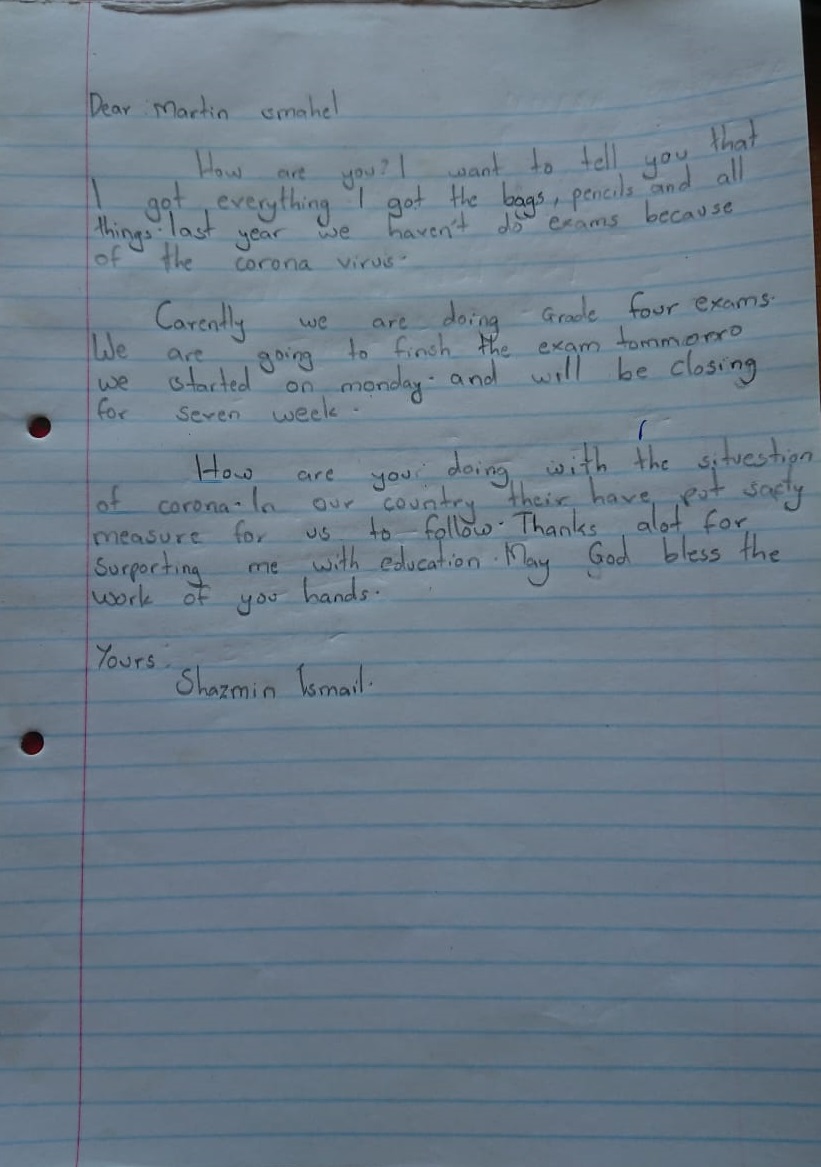 Dear Martin smahel
How are you? I want to tell you that
I got everything I got the bags, pencils and all
things. last year we haven't do exams because
of the corona virus.
Carently we are doing Grade four exams.
We are going to finsh the exam tommorro
we started on monday. and will be closing
for seven week.
How are you doing with the situestion
of corona. In our country their have put safty
measure for us to follow. Thanks alot for
Surporting me with education. May God bless the
work of you hands.
Yours.
Shazmin Ismail.